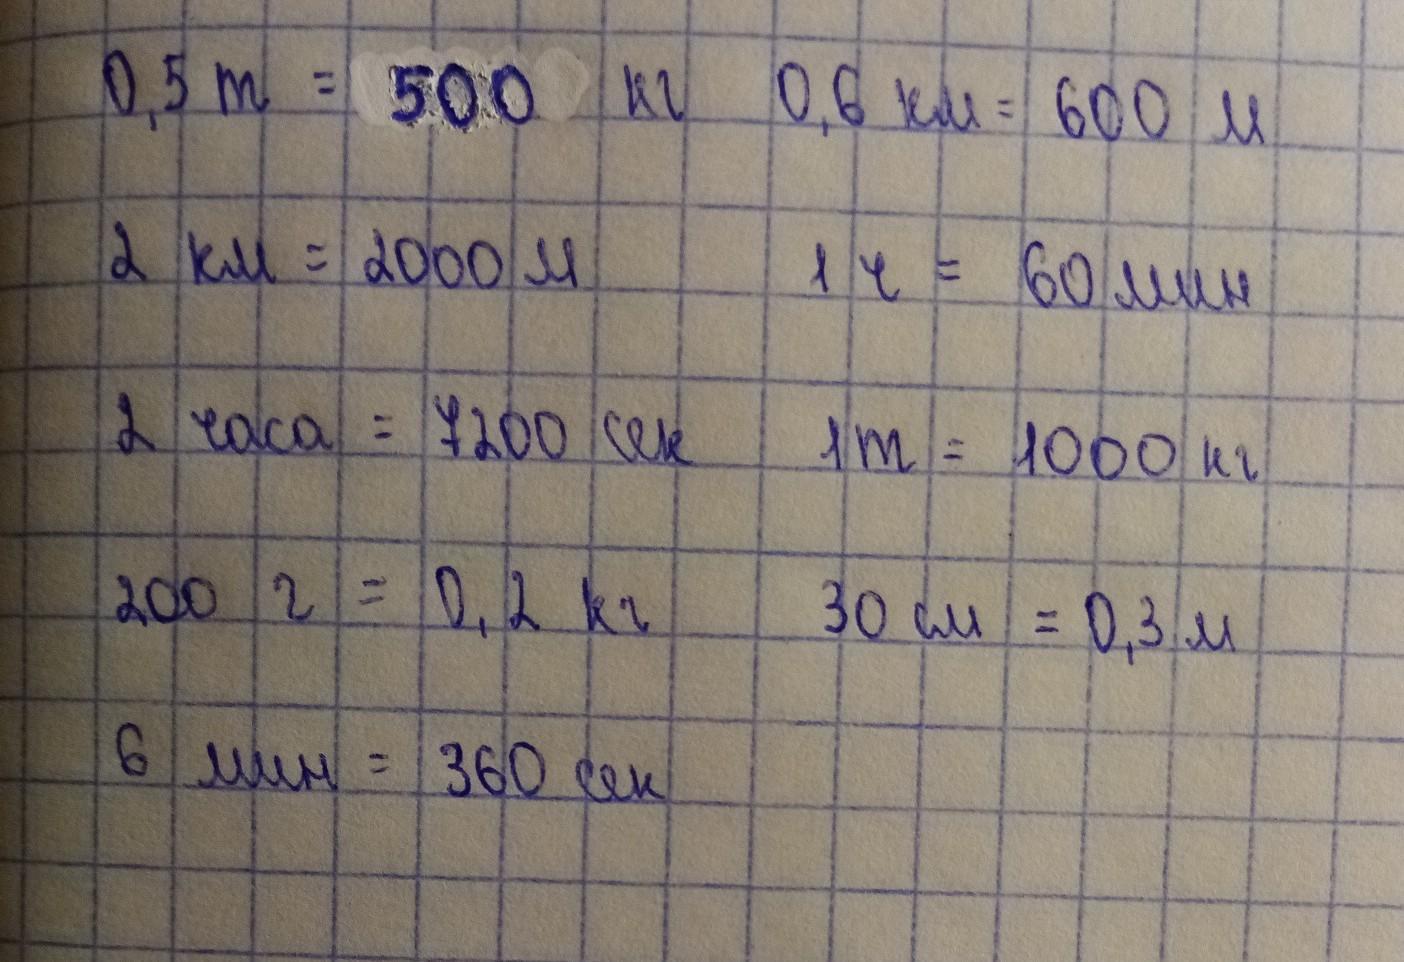 0,5 т = 500 кг 0,6 км = 600 м
2 км = 2000 м 1 ч = 60 мин
2 часа = 7200 сек 1 т = 1000 кг
200 г = 0,2 кг 30 см = 0,3 м
6 мин = 360 сек